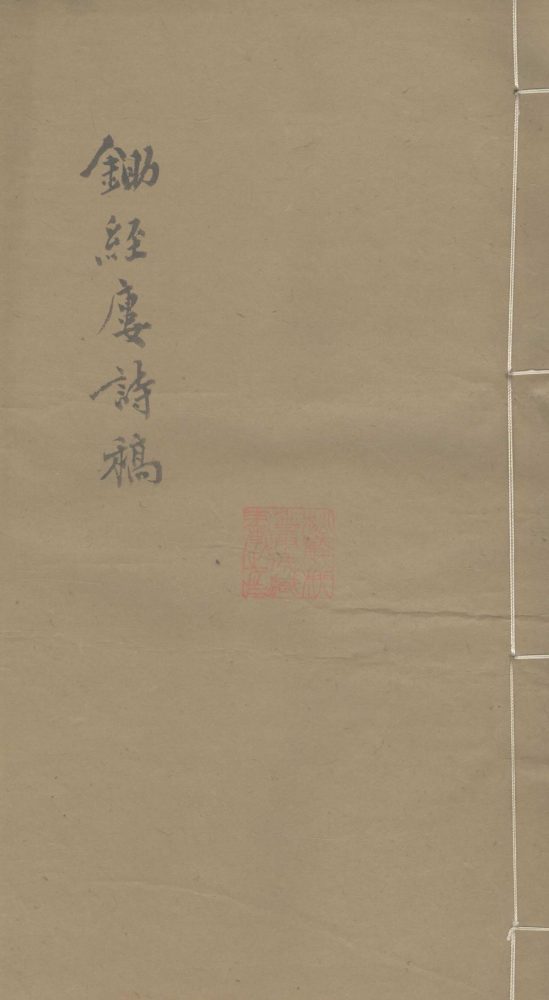 鋤經廔詩稿